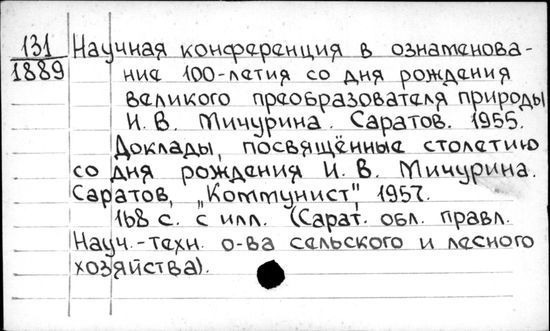 131
1889
Научная конференция в ознаменова-
ние 100-летия со дня рождения
великого преобразователя природы
И. В. Мичурина. Саратов. 1955.
Доклады, посвящённые столетию
со дня рождения И. В. Мичурина.
Саратов, „Коммунист", 1957.
168 с. с илл. (Сарат. обл. правл.
Науч.-техн. о-ва сельского и лесного
хозяйства).